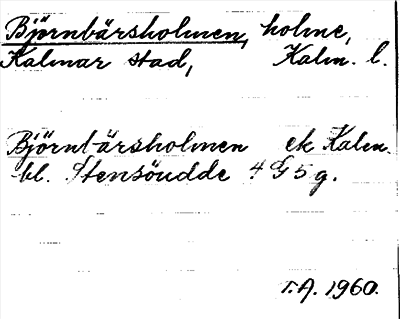 Björnbärsholmen, holme,
Kalmar stad, Kalm. l.
Björnbärsholmen ek Kalm.
bl. Stensöudde 4 G 5 g.
T.A. 1960.